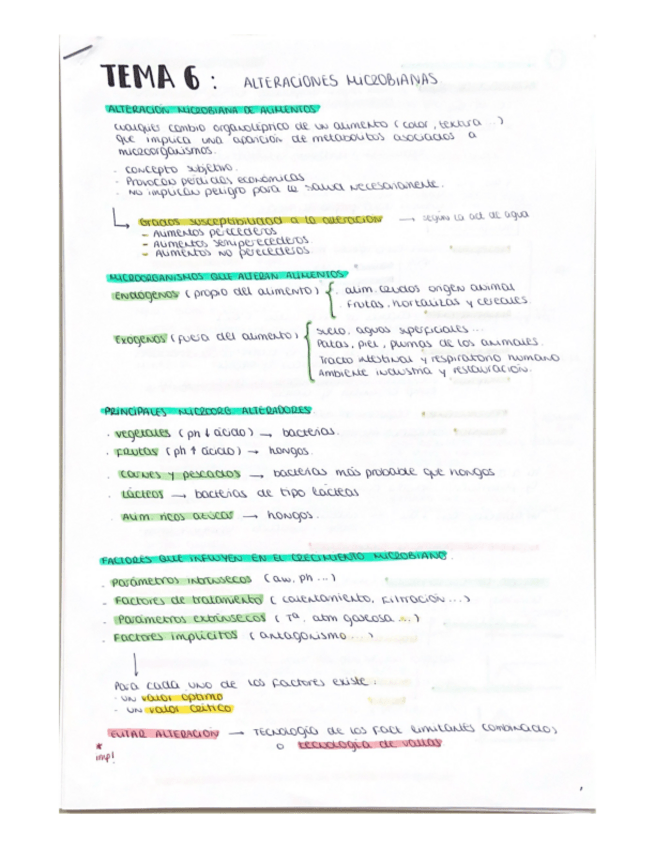 TEMA 6 : ALTERACIONES MICROBIANAS
ALTERACIÓN MICROBIANA DE ALIMENTOS
cualquier cambio organoléptico de un alimento (color, textura ...)
que implica una aparición de metabolitos asociados a
microorganismos.
· concepto subjetivo.
· Provocan pérdidas económicas
· No implican peligro para la salud necesariamente.
Grados susceptibilidad a la alteración → según la act de agua
- Alimentos perecederos
- Alimentos semiperecederos
- Alimentos no perecederos
MICROORGANISMOS QUE ALTERAN ALIMENTOS
Endógenos (propio del alimento) { · alim. crudos origen animal
· Frutas, hortalizas y cereales.
Exógenos (fuera del alimento) { suelo, aguas superficiales ...
Patas, piel, plumas de los animales.
Tracto intestinal y respiratorio humano
Ambiente industria y restauración.
PRINCIPALES MICROORG ALTERADORES
· vegetales (ph ↓ ácido) → bacterias.
· Frutas (ph ↑ ácido) → hongos.
· carnes y pescados → bacterias más probable que hongos
· Lácteos → bacterias de tipo lácteas
· Alim ricos → hongos.
FACTORES QUE INFLUYEN EN EL CRECIMIENTO MICROBIANO.
· Parámetros intrínsecos (aw, ph ...)
· Factores de tratamiento (calentamiento, Filtración ...)
· Parámetros extrínsecos (Tª, atm gaseosa ...)
· Factores implícitos (antagonismo ...)
Para cada uno de los factores existe:
· un valor óptimo
· un valor crítico
EVITAR ALTERACIÓN → TECNOLOGÍA de los Fact limitantes combinados
o tecnología de vallas
* imp!